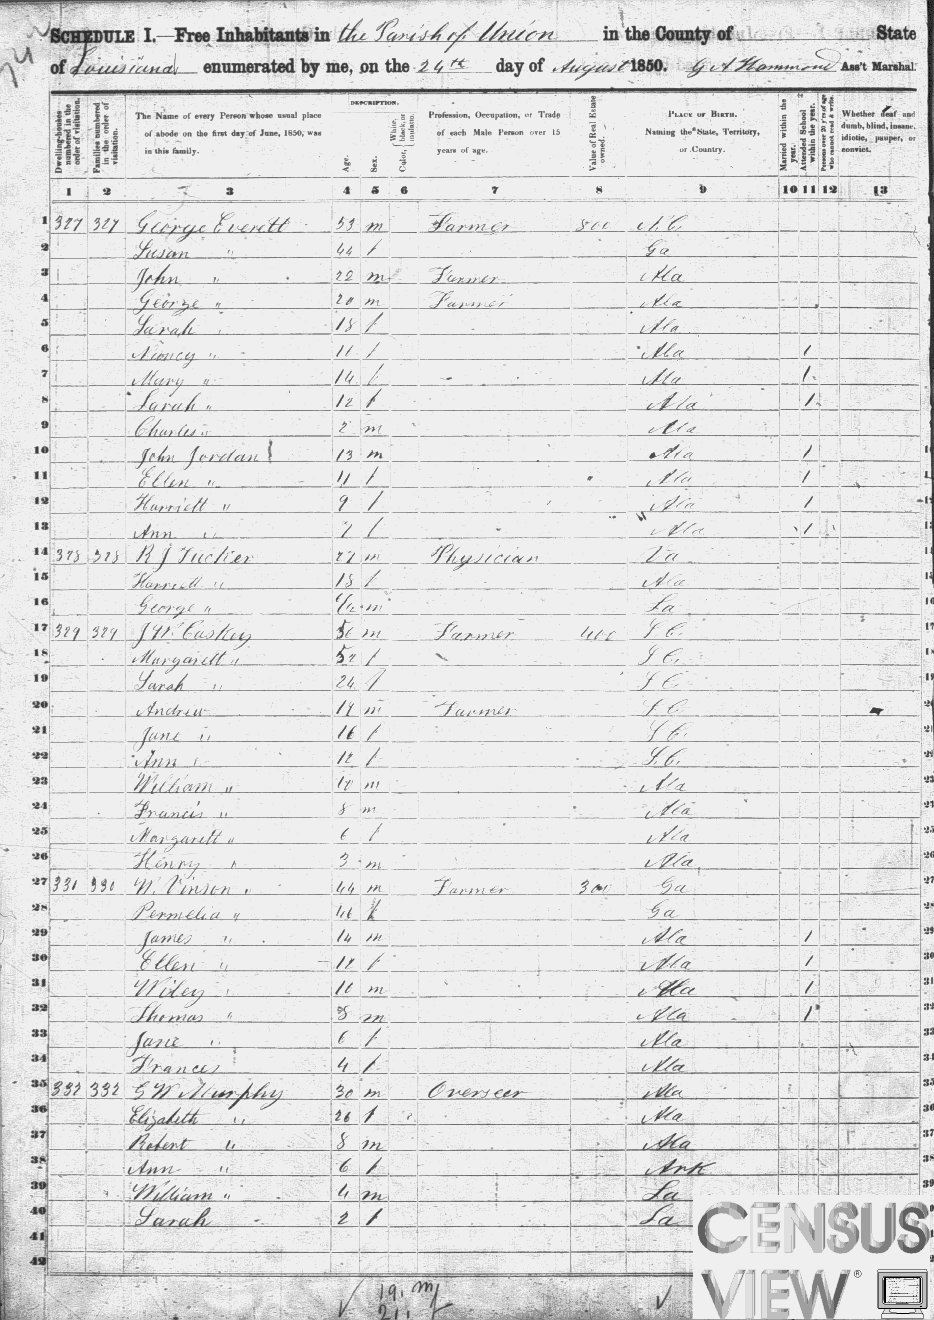 SCHEDULE I.—Free Inhabitants in the Parish of Union in the County of State
of Louisiana enumerated by me, on the 24th day of August 1850. G A Hammond Ass't Marshal.
DESCRIPTION.
Dwelling-houses numbered in the order of visitation.
Families numbered in the order of visitation.
The Name of every Person whose usual place of abode on the first day of June, 1850, was in this family.
Age.
Sex.
Color, White, black, or mulatto.
Profession, Occupation, or Trade of each Male Person over 15 years of age.
Value of Real Estate owned.
PLACE OF BIRTH. Naming the State, Territory, or Country.
Married within the year.
Attended School within the year.
Persons over 20 y'rs of age who cannot read & write.
Whether deaf and dumb, blind, insane, idiotic, pauper, or convict.
1 2 3 4 5 6 7 8 9 10 11 12 13
1 327 327 George Everett 53 m Farmer 800 N.C.
2 Susan " 44 f Ga
3 John " 22 m Farmer Ala
4 George " 20 m Farmer Ala
5 Sarah " 18 f Ala
6 Nancy " 11 f Ala 1
7 Mary " 14 f Ala 1
8 Sarah " 12 f Ala 1
9 Charles " 2 m Ala
10 John Jordan 13 m Ala 1
11 Ellen " 11 f Ala 1
12 Harriett " 9 f Ala 1
13 Ann " 7 f Ala 1
14 328 328 R J Tucker 27 m Physician Va
15 Harriett " 18 f Ala
16 George " /12 m La
17 329 329 J W Caskey 56 m Farmer 400 S C.
18 Margarett " 52 f S C.
19 Sarah " 24 f S C.
20 Andrew 19 m Farmer S C.
21 Jane " 16 f S C.
22 Ann " 12 f S.C.
23 William " 10 m Ala
24 Francis " 8 m Ala
25 Margarett " 6 f Ala
26 Henry " 3 m Ala
27 330 330 W. Vinson " 44 m Farmer 300 Ga
28 Permelia " 46 f Ga
29 James " 14 m Ala 1
30 Ellen " 12 f Ala 1
31 Wiley " 10 m Ala 1
32 Thomas " 8 m Ala 1
33 Jane " 6 f Ala
34 Frances 4 f Ala
35 332 332 G W Murphy 30 m Overseer Ala
36 Elizabeth " 26 f Ala
37 Robert " 8 m Ala
38 Ann " 6 f Ark
39 William " 4 m La
40 Sarah 2 f La
41
42
19. m
21. f
CENSUS
VIEW®